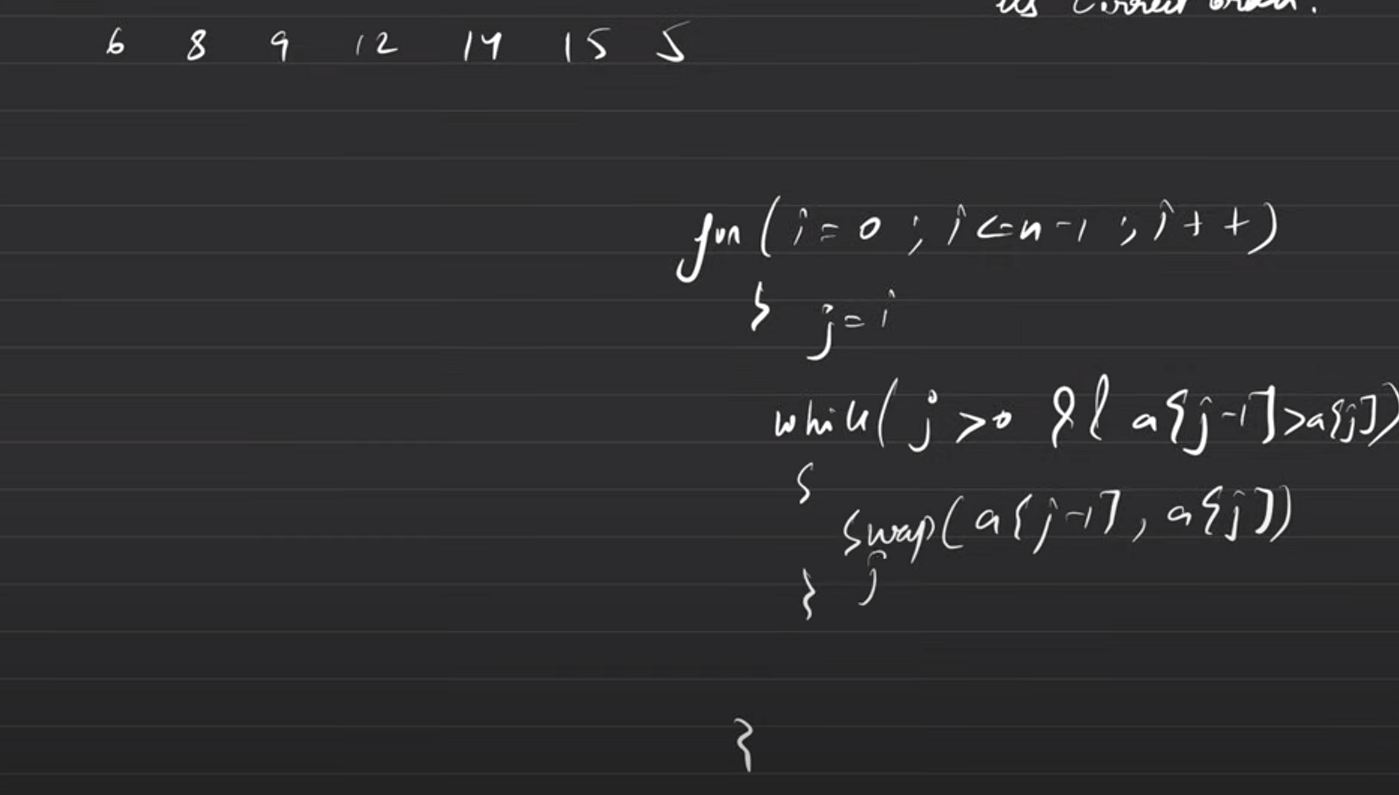 its correct order.
6 8 9 12 14 15 5
for (i=0 ; i<=n-1 ; i++)
{ j=i
while( j>0 && a[j-1]>a[j])
{
swap(a[j-1], a[j])
} j
}